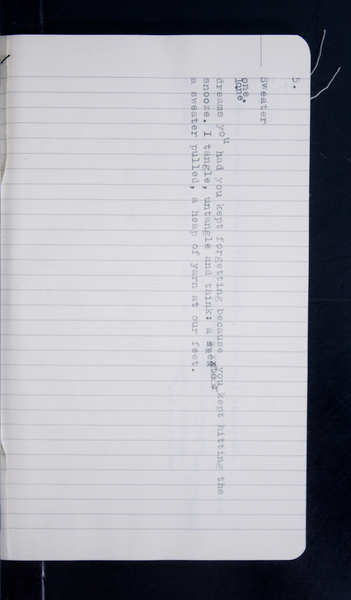 5.
Sweater
one.
dreams you had you kept forgetting because you kept hitting the
snooze. I tangle, untangle and think: a
a sweater pulled, a heap of yarn at our feet.